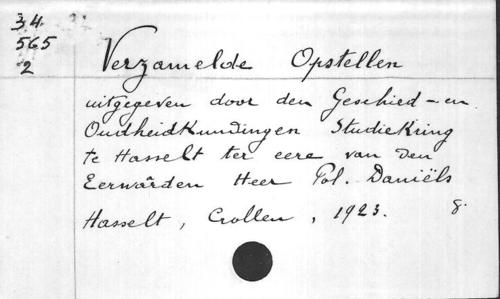 34.
565
2
Verzamelde Opstellen
uitgegeven door den Geschied-en
Oudheidkundingen Studiekring
te Hasselt ter eere van den
Eerwarden Heer Pol. Daniëls
Hasselt, Crollen, 1923. 8.